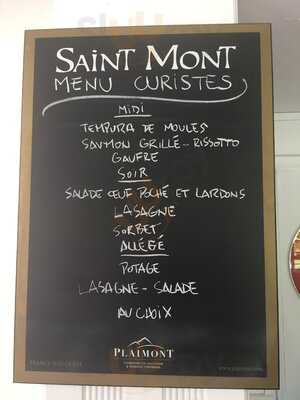 SAINT MONT
MENU CURISTES
MIDI
TEMPURA DE MOULES
SAUMON GRILLÉ - RISSOTTO
GAUFRE
SOIR
SALADE ŒUF POCHÉ ET LARDONS
LASAGNE
SORBET
ALLÉGÉ
POTAGE
LASAGNE - SALADE
AU CHOIX
PLAIMONT